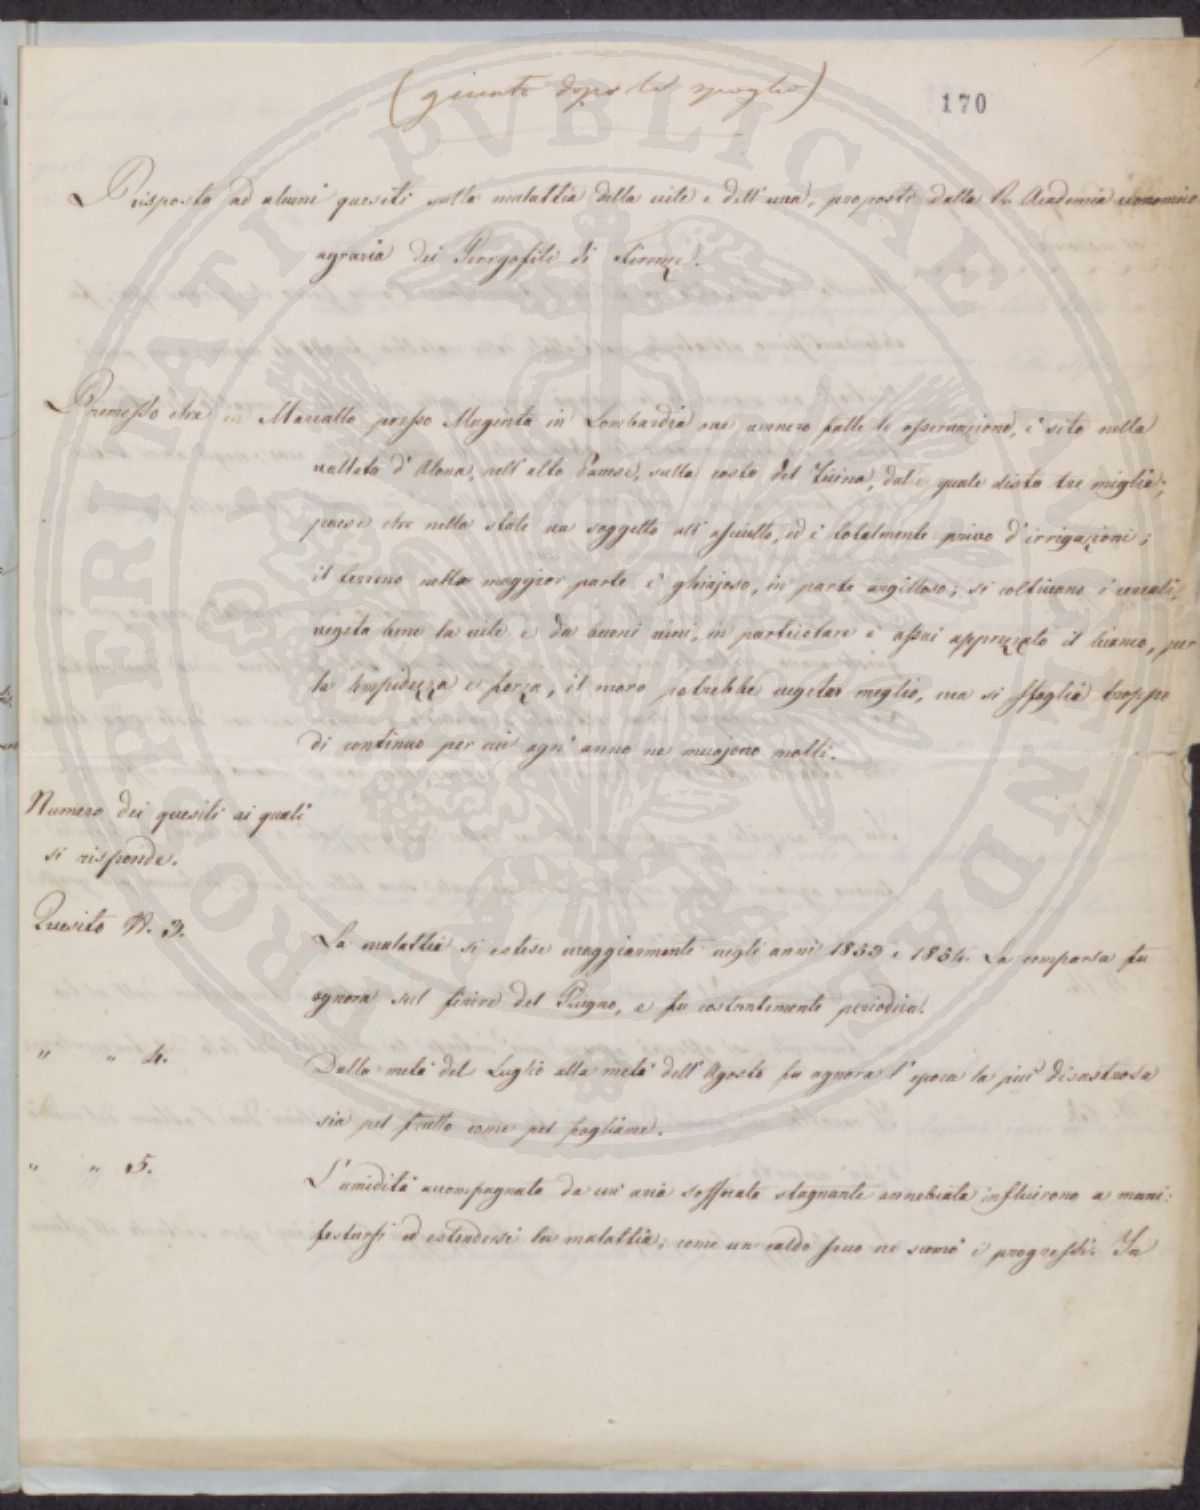 (giunto dopo lo spoglio)
170
Risposta ad alcuni quesiti sulla malattia della vite e dell'uva, proposti dalla R. Accademia economico
agraria dei Georgofili di Firenze.
Premesso che in Marcallo presso Magenta in Lombardia ove vennero fatte le osservazioni, è sito nella
vallata d'Olona, nell'alto Pavese, sulla costa del Ticino, dal quale dista tre miglia;
paese che nella state va soggetto all'asciutto, ed è totalmente privo d'irrigazioni;
il terreno nella maggior parte è ghiajoso, in parte argilloso; si coltivano i cereali,
vegeta bene la vite e da buoni vini, in particolare è assai apprezzato il bianco, per
la limpidezza e forza, il moro potrebbe vegetar meglio, ma si sfoglia troppo
di continuo per cui ogn'anno ne muojono molti.
Numero dei quesiti ai quali
si risponde.
Quesito N. 3.
La malattia si estese maggiormente negli anni 1853 e 1854. La comparsa fu
ognora sul finire del Giugno, e fu costantemente periodica.
" " 4.
Dalla metà del Luglio alla metà dell'Agosto fu ognora l'epoca la più disastrosa
sia pel frutto come pel fogliame.
" " 5.
L'umidità accompagnata da un'aria soffocata stagnante annebiata influirono a mani:
festarsi ed estendersi la malattia; come un caldo secco ne scemò i progressi. In
PROSPERITATI PVBLICAE AVGENDAE